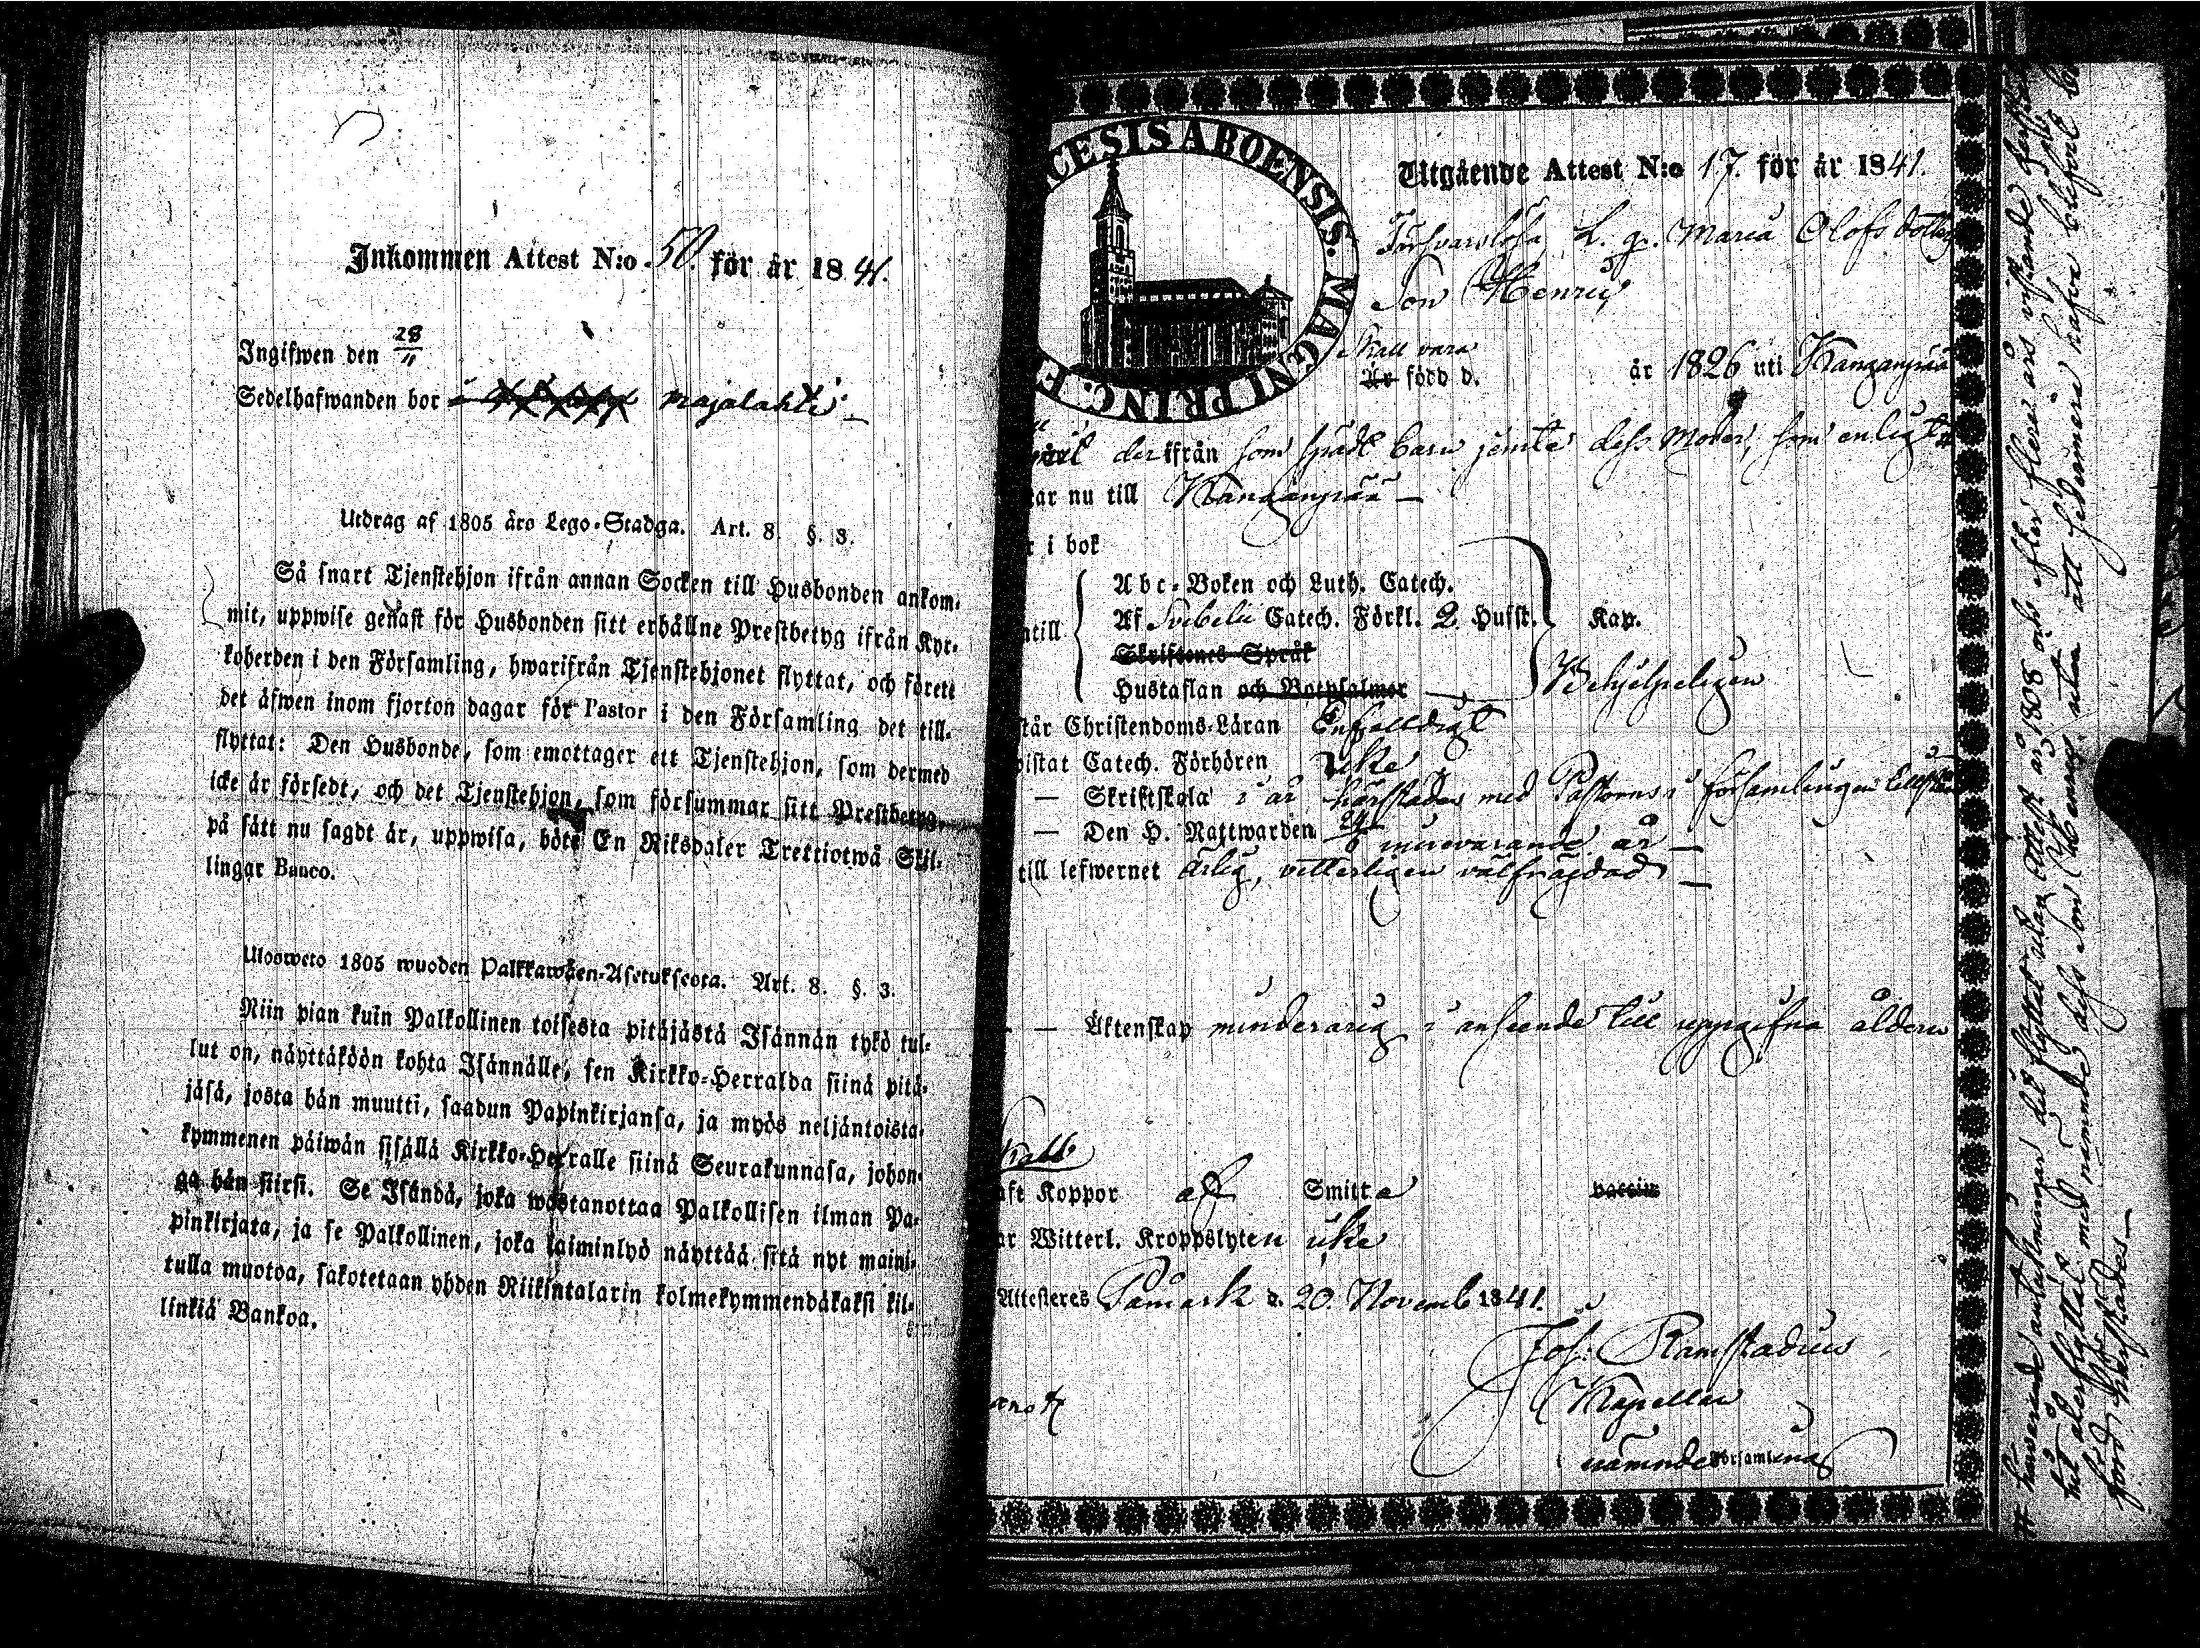 Inkommen Attest N:o 50. för år 1841.
Ingifwen den 28/11
Sedelhafwanden bor i Majalahti
Utdrag af 1805 års Lego-Stadga. Art. 8. §. 3.
Så snart Tjenstehjon ifrån annan Socken till Husbonden ankom-
mit, uppwise genast för Husbonden sitt erhållne Prestbetyg ifrån Kyr-
koherden i den Församling, hwarifrån Tjenstehjonet flyttat, och förete
det äfwen inom fjorton dagar för Pastor i den Församling det till-
flyttat: Den Husbonde, som emottager ett Tjenstehjon, som dermed
icke är försedt, och det Tjenstehjon, som försummar sitt Prestbetyg,
på sätt nu sagdt är, uppwisa, böte En Riksdaler Trettiotwå Skil-
lingar Banco.
Ulosweto 1805 wuoden Palkkawäen-Asetuksesta. Art. 8. §. 3.
Niin pian kuin Palkollinen toisesta pitäjästä Isännän tykö tul-
lut on, näyttäköön kohta Isännälle, sen Kirkko-Herralda siinä pitä-
jäsä, josta hän muutti, saadun Papinkirjansa, ja myös neljäntoista-
kymmenen päiwän sisällä Kirkko-Herralle siinä Seurakunnasa, johon-
ga hän siirsi. Se Isändä, joka wastanottaa Palkollisen ilman Pa-
pinkirjata, ja se Palkollinen, joka laiminlyö näyttää sitä nyt maini-
tulla muotoa, sakotetaan yhden Riikintalarin kolmekymmendäkaksi kil-
linkiä Bankoa.
CESIS ABOENSIS. MAGNI PRINC. F
Utgående Attest N:o 17. för år 1841.
Försvarslösa L. q. Maria Olofsdotters
Son Henric
Skall vara
Är född d. år 1826 uti Kanganpää
derifrån som spädt barn jemte dess Moder, som enligt
tar nu till Kanganpää
r i bok
Abc-Boken och Luth. Catech.
ntill Af Svebelii Catech. Förkl. 2 Hufst. Kap.
Skriftenes Språk
Hustaflan och Botpsalmer Behjelpeligen
står Christendoms-Läran Enfalldigt
vistat Catech. Förhören icke
— Skriftskola i år härstädes med Pastorns i församlingen
— Den H. Nattwarden innevarande år
till lefwernet ärlig, vetterligen välfräjdad
— Äktenskap minderårig i anseende till uppgifna åldern
Skall
aft Koppor af Smitta vaccin
ar Witterl. Kroppslyten icke
Attesteras Påmark d. 20. Novemb 1841.
Joh: Ramstadius
Kapellan
nämnde Församling
härvarande anteckningar det flyttat utan attest år 1808 och efter flere års vistande
hit återflyttat med nämnde dess Son Henric utan att sedermera hafva blifvit
förd härstädes